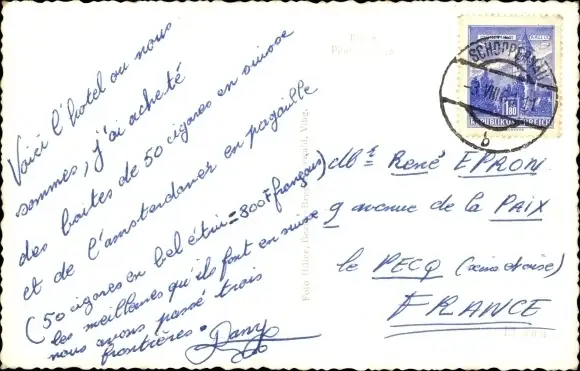 Voici l'hotel ou nous
sommes, j'ai acheté
des boites de 50 cigares en suisse
et de l'amsterdamer en pagaille
(50 cigares en bel étui = 800F français)
les meilleures qu'ils font en suisse
nous avons passé trois
frontières.
Dany
Foto Hiller,
SCHOPPERNAU
VIII
b
1.80
REPUBLIK ÖSTERREICH
Mr René EPRON
9 avenue de la PAIX
le PECQ (seine et oise)
FRANCE